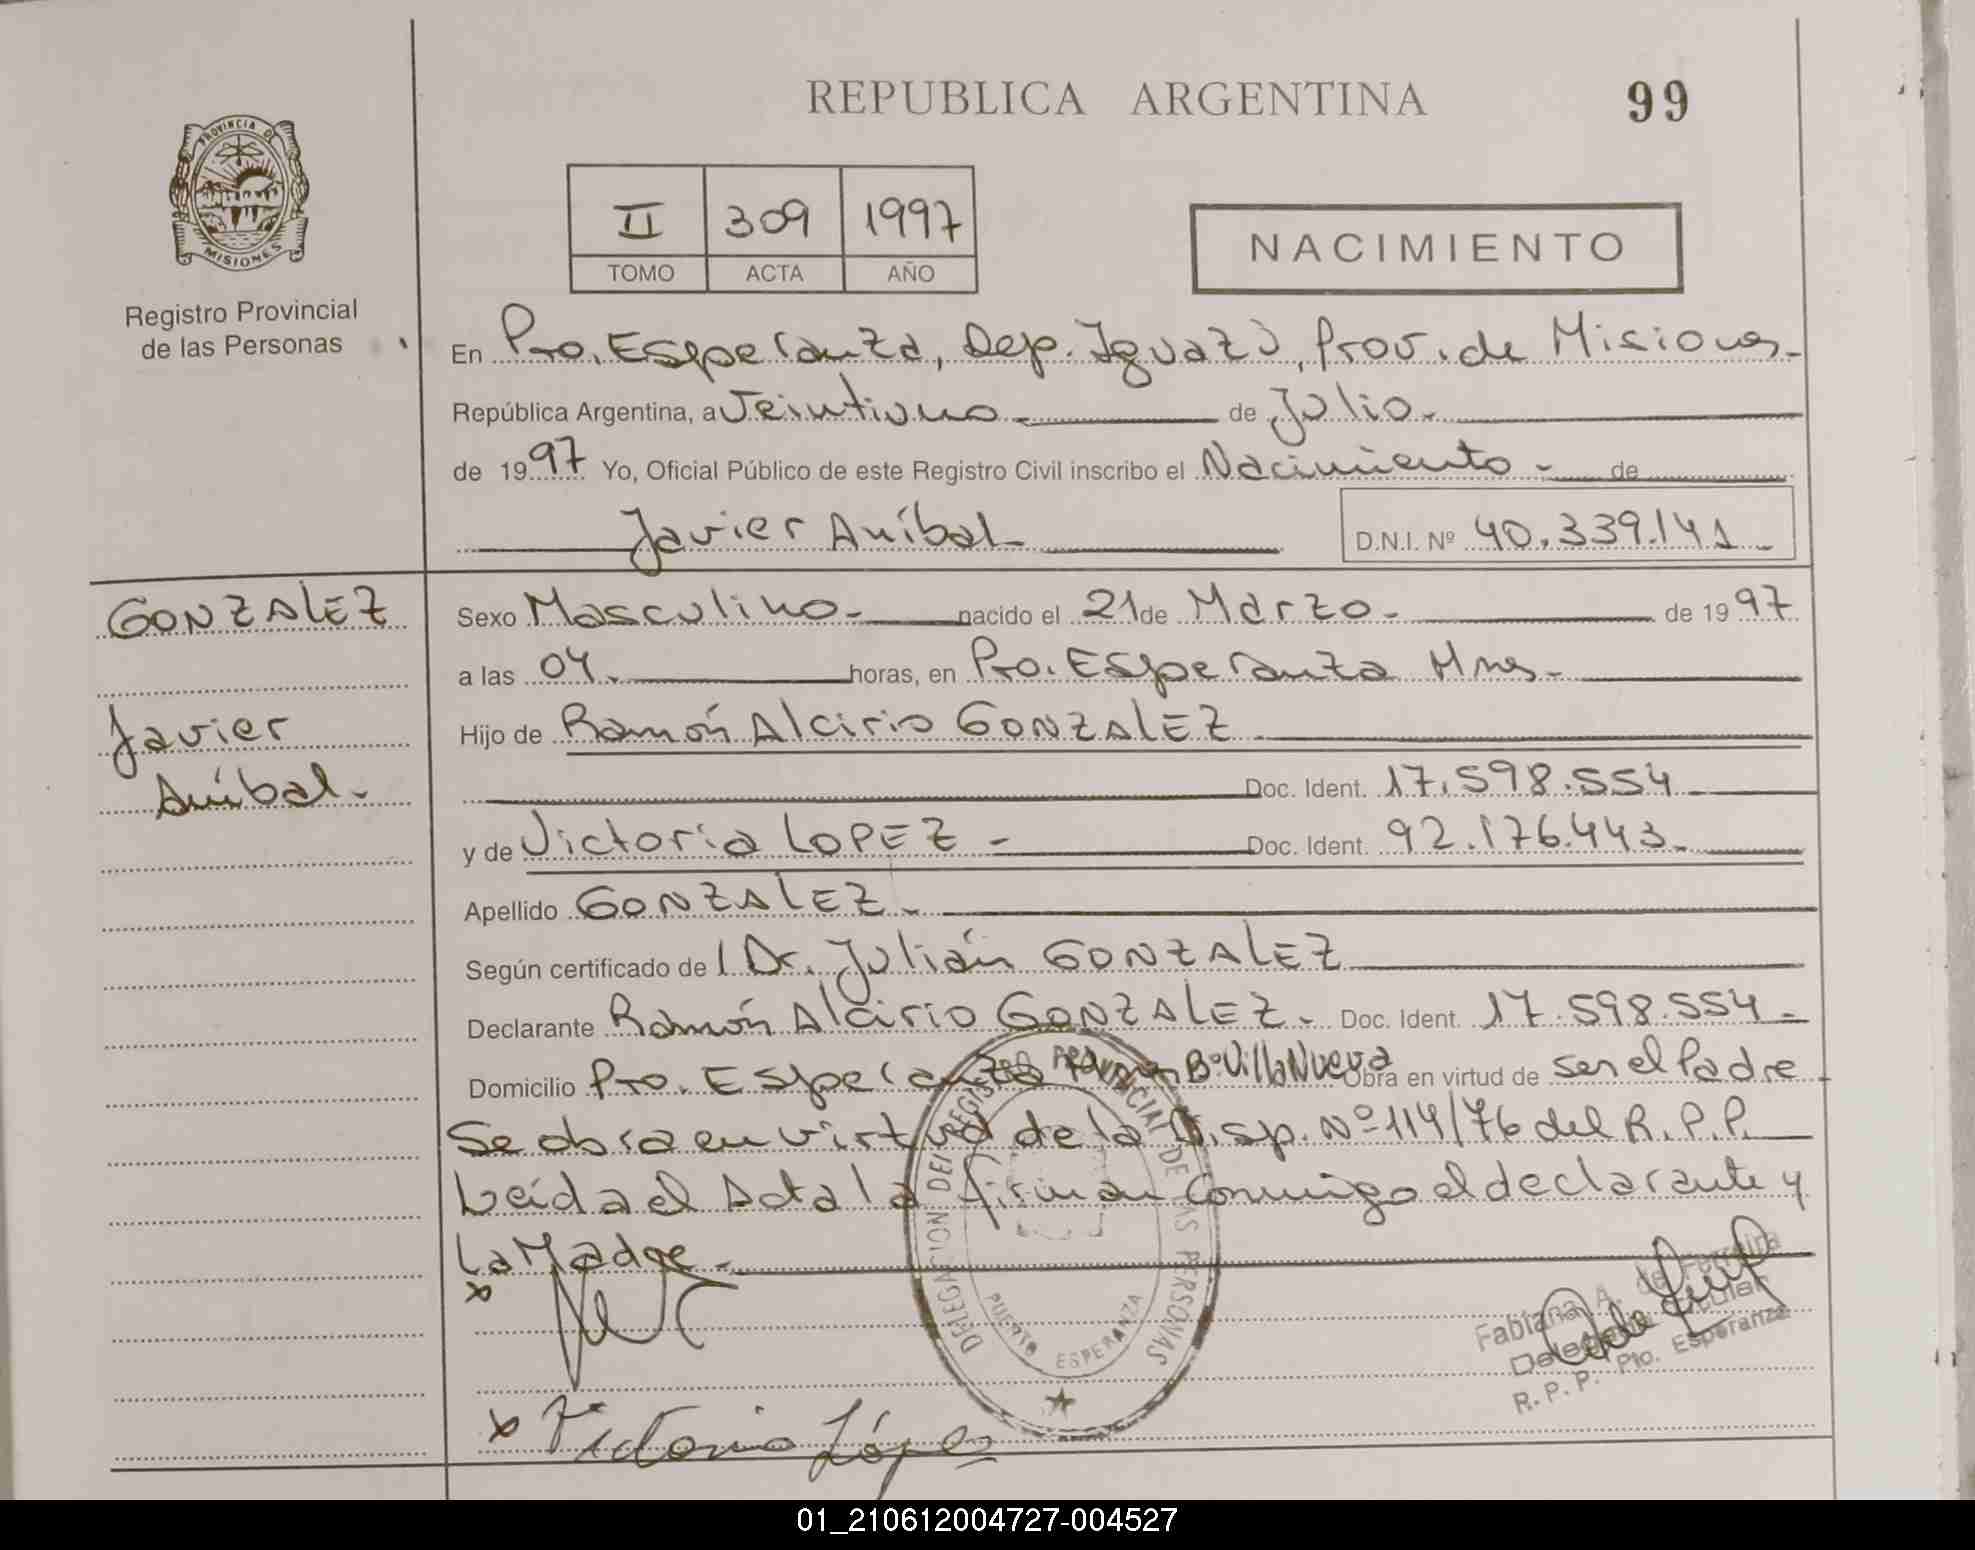 REPUBLICA ARGENTINA
99
PROVINCIA DE
MISIONES
Registro Provincial
de las Personas
II 309 1997
TOMO ACTA AÑO
NACIMIENTO
En Pto. Esperanza, Dep. Iguazú, Prov. de Misiones-
República Argentina, a Veintiuno- de Julio.
de 1997 Yo, Oficial Público de este Registro Civil inscribo el Nacimiento- de
Javier Aníbal
D.N.I. Nº 40.339.141
GONZALEZ
Javier
Aníbal.
Sexo Masculino- nacido el 21 de Marzo- de 1997
a las 04. horas, en Pto. Esperanza Mnes-
Hijo de Ramón Alcirio GONZALEZ
Doc. Ident. 17.598.554
y de Victoria LOPEZ - Doc. Ident. 92.176.443-
Apellido GONZALEZ-
Según certificado de l Dr. Julián GONZALEZ
Declarante Ramón Alcirio GONZALEZ. Doc. Ident. 17.598.554-
Domicilio Pto. Esperanza Bº Villa Nueva Obra en virtud de ser el Padre
Se obra en virtud de la Disp. Nº 114/76 del R.P.P.
Leída el Acta la firman conmigo el declarante y
La Madre.-
DELEGACION DEL REGISTRO PROVINCIAL DE LAS PERSONAS
PUERTO ESPERANZA
Fabiana A. de Ferreira
Delegada Titular
R.P.P. Pto. Esperanza
x
x Victoria López
01_210612004727-004527